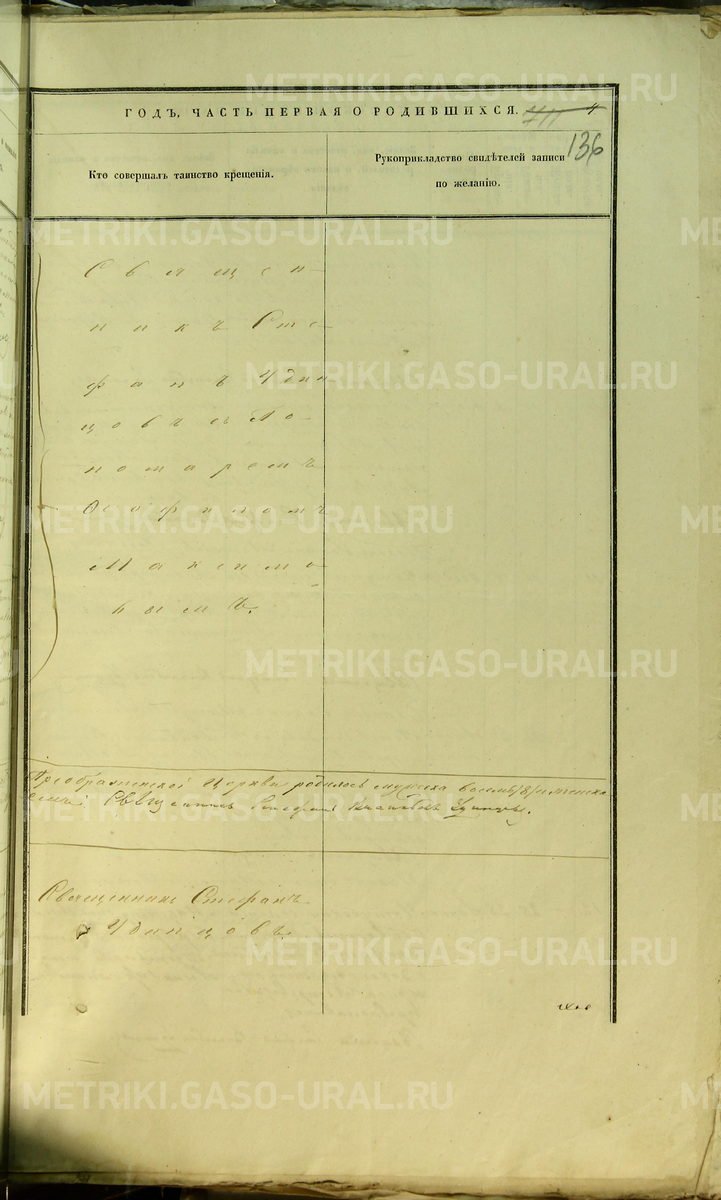 ГОДЪ, ЧАСТЬ ПЕРВАЯ О РОДИВШИХСЯ. 4
136
Кто совершалъ таинство крещенія.
Рукоприкладство свидѣтелей записи
по желанію.
Свящeн-
никъ Сте-
фанъ Удин
цовъ съ По-
номаремъ
Ѳеофиломъ
Максимо-
вымъ.
Преображенской Церкви родилось мужеска восемь /8/ женска
Священникъ Стефанъ
Удинцовъ.
METRIKI.GASO-URAL.RU
METRIKI.GASO-URAL.RU
METRIKI.GASO-URAL.RU
METRIKI.GASO-URAL.RU
METRIKI.GASO-URAL.RU
METRIKI.GASO-URAL.RU
METRIKI.GASO-URAL.RU
METRIKI.GASO-URAL.RU